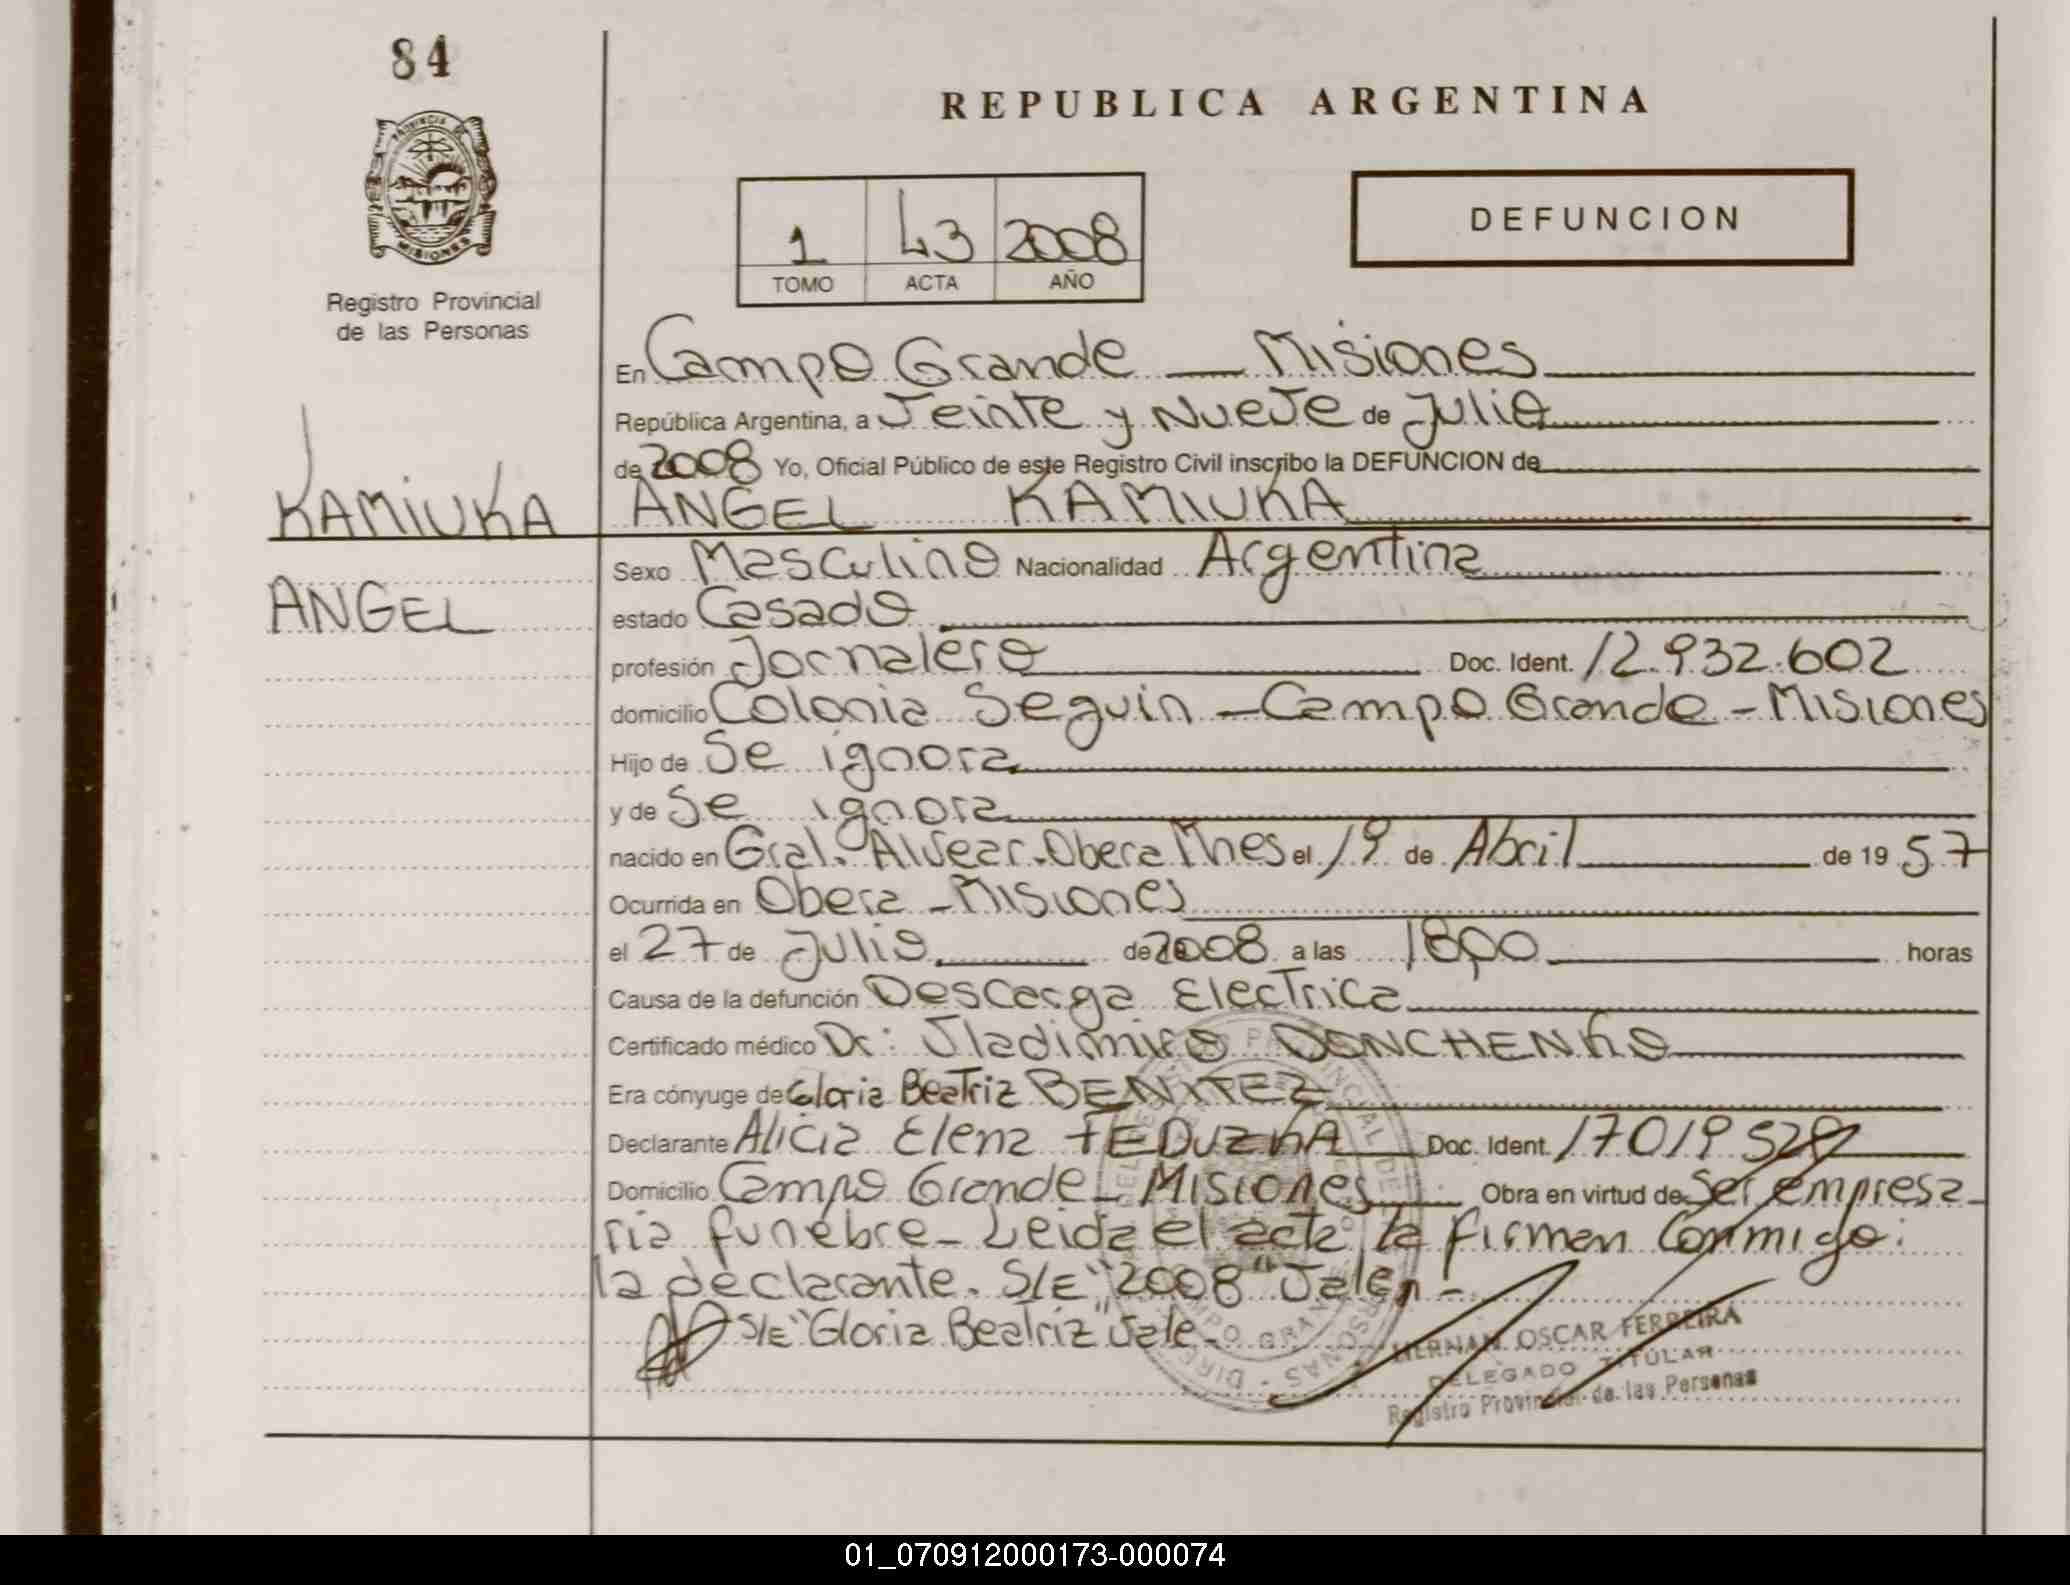 84
REPUBLICA ARGENTINA
PROVINCIA DE
MISIONES
Registro Provincial
de las Personas
1 43 2008
TOMO ACTA AÑO
DEFUNCION
En Campo Grande — Misiones
República Argentina, a Veinte y Nueve de Julio
de 2008 Yo, Oficial Público de este Registro Civil inscribo la DEFUNCION de
KAMIUKA ANGEL KAMIUKA
ANGEL
Sexo Masculino Nacionalidad Argentina
estado Casado
profesión Jornalero Doc. Ident. 12.932.602
domicilio Colonia Seguin - Campo Grande - Misiones
Hijo de Se ignora
y de Se ignora
nacido en Gral. Alvear. Obera Mnes el 19 de Abril de 19 57
Ocurrida en Obera - Misiones
el 27 de Julio de 2008 a las 1800 horas
Causa de la defunción Descarga Electrica
Certificado médico Dr: Vladimiro DONCHENKO
Era cónyuge de Gloria Beatriz BENITEZ
Declarante Alicia Elena FEDUZKA Doc. Ident. 17019528
Domicilio Campo Grande - Misiones Obra en virtud de Ser empresa-
ria funebre - Leida el acta la firman conmigo:
la declarante. S/E "2008" Valen -
S/E "Gloria Beatriz" Vale -
HERNAN OSCAR FERREIRA
DELEGADO TITULAR
Registro Provincial de las Personas
01_070912000173-000074